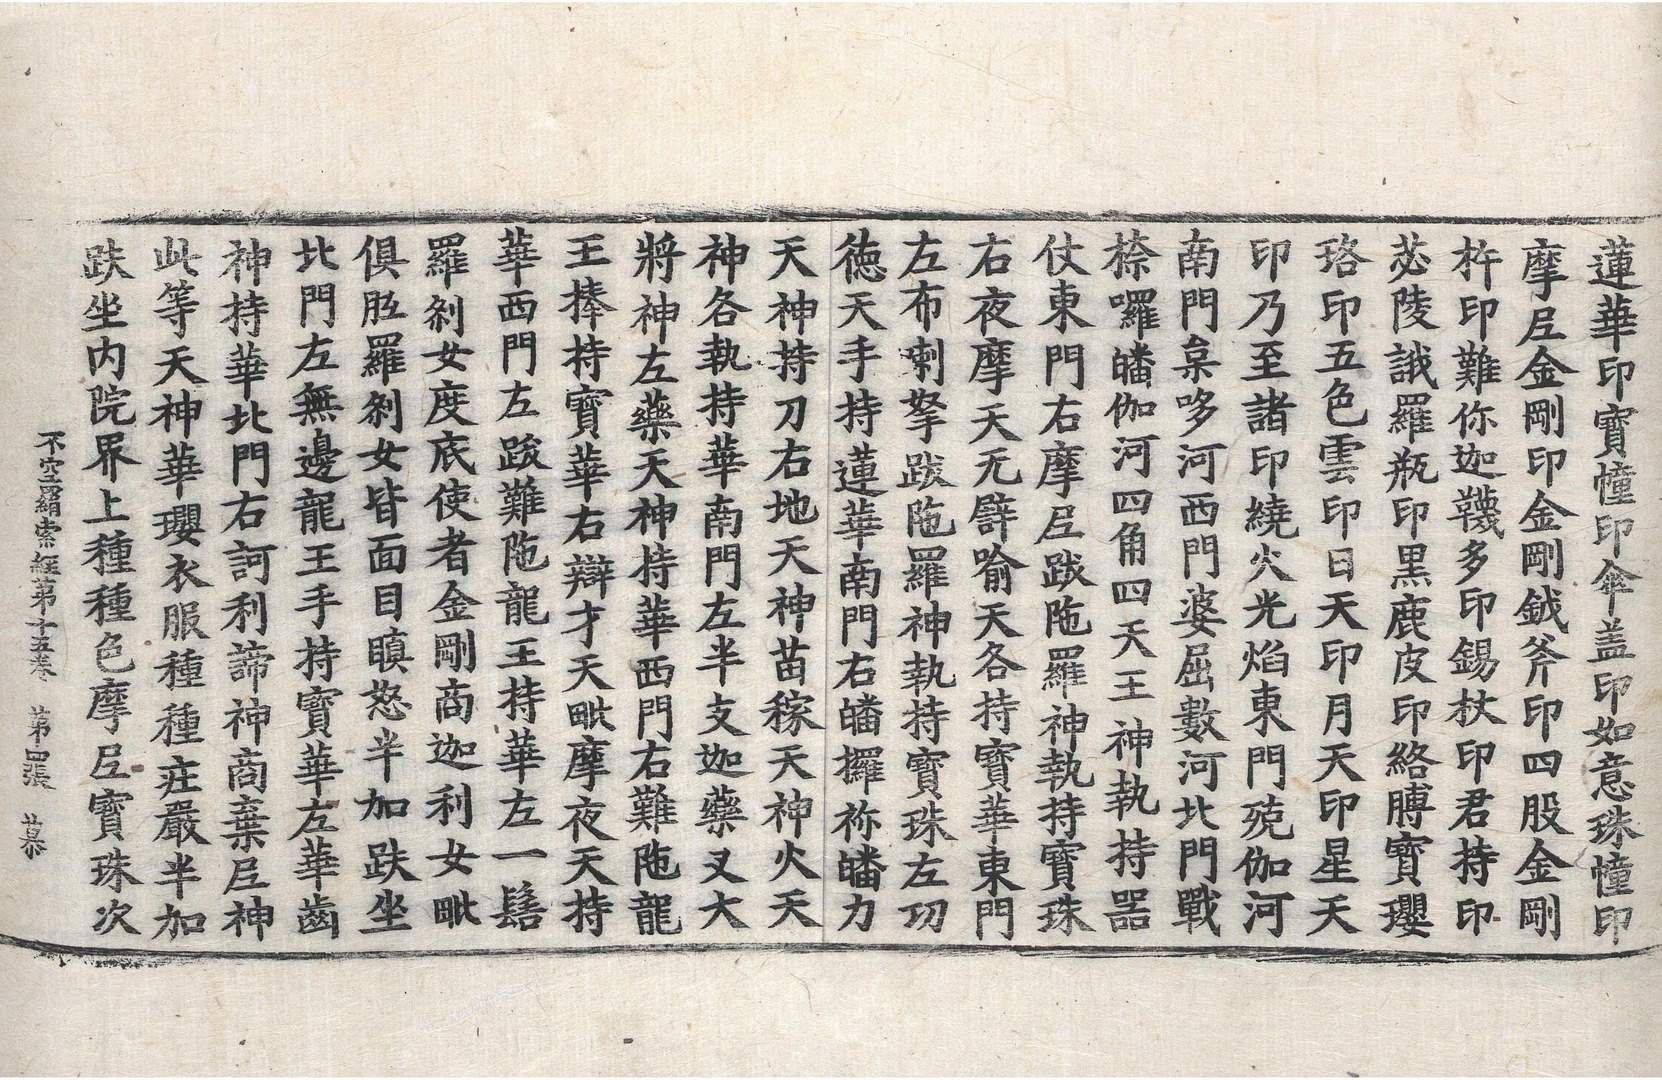 蓮華印寶幢印傘盖印如意珠幢印
摩尼金剛印金剛鉞斧印四股金剛
杵印難你迦韈多印錫杖印君持印
苾陵誐羅瓶印黑鹿皮印絡膊寶瓔
珞印五色雲印日天印月天印星天
印乃至諸印繞火光焰東門殑伽河
南門枲哆河西門婆屈數河北門戰
捺囉皤伽河四角四天王神執持器
仗東門右摩尼跋陁羅神執持寶珠
右夜摩天无礕喻天各持寶華東門
左布喇拏跋陁羅神執持寶珠左功
徳天手持蓮華南門右皤攞祢皤力
天神持刀右地天神苗稼天神火天
神各執持華南門左半支迦藥叉大
將神左藥天神持華西門右難陁龍
王捧持寶華右辯才天毗摩夜天持
華西門左跋難陁龍王持華左一髻
羅刹女度底使者金剛商迦利女毗
俱胝羅刹女皆面目瞋怒半加趺坐
北門左無邊龍王手持寶華左華齒
神持華北門右訶利諦神商棄尼神
此等天神華瓔衣服種種莊嚴半加
趺坐内院界上種種色摩尼寶珠次
不空羂索經第十五卷 第四張 慕